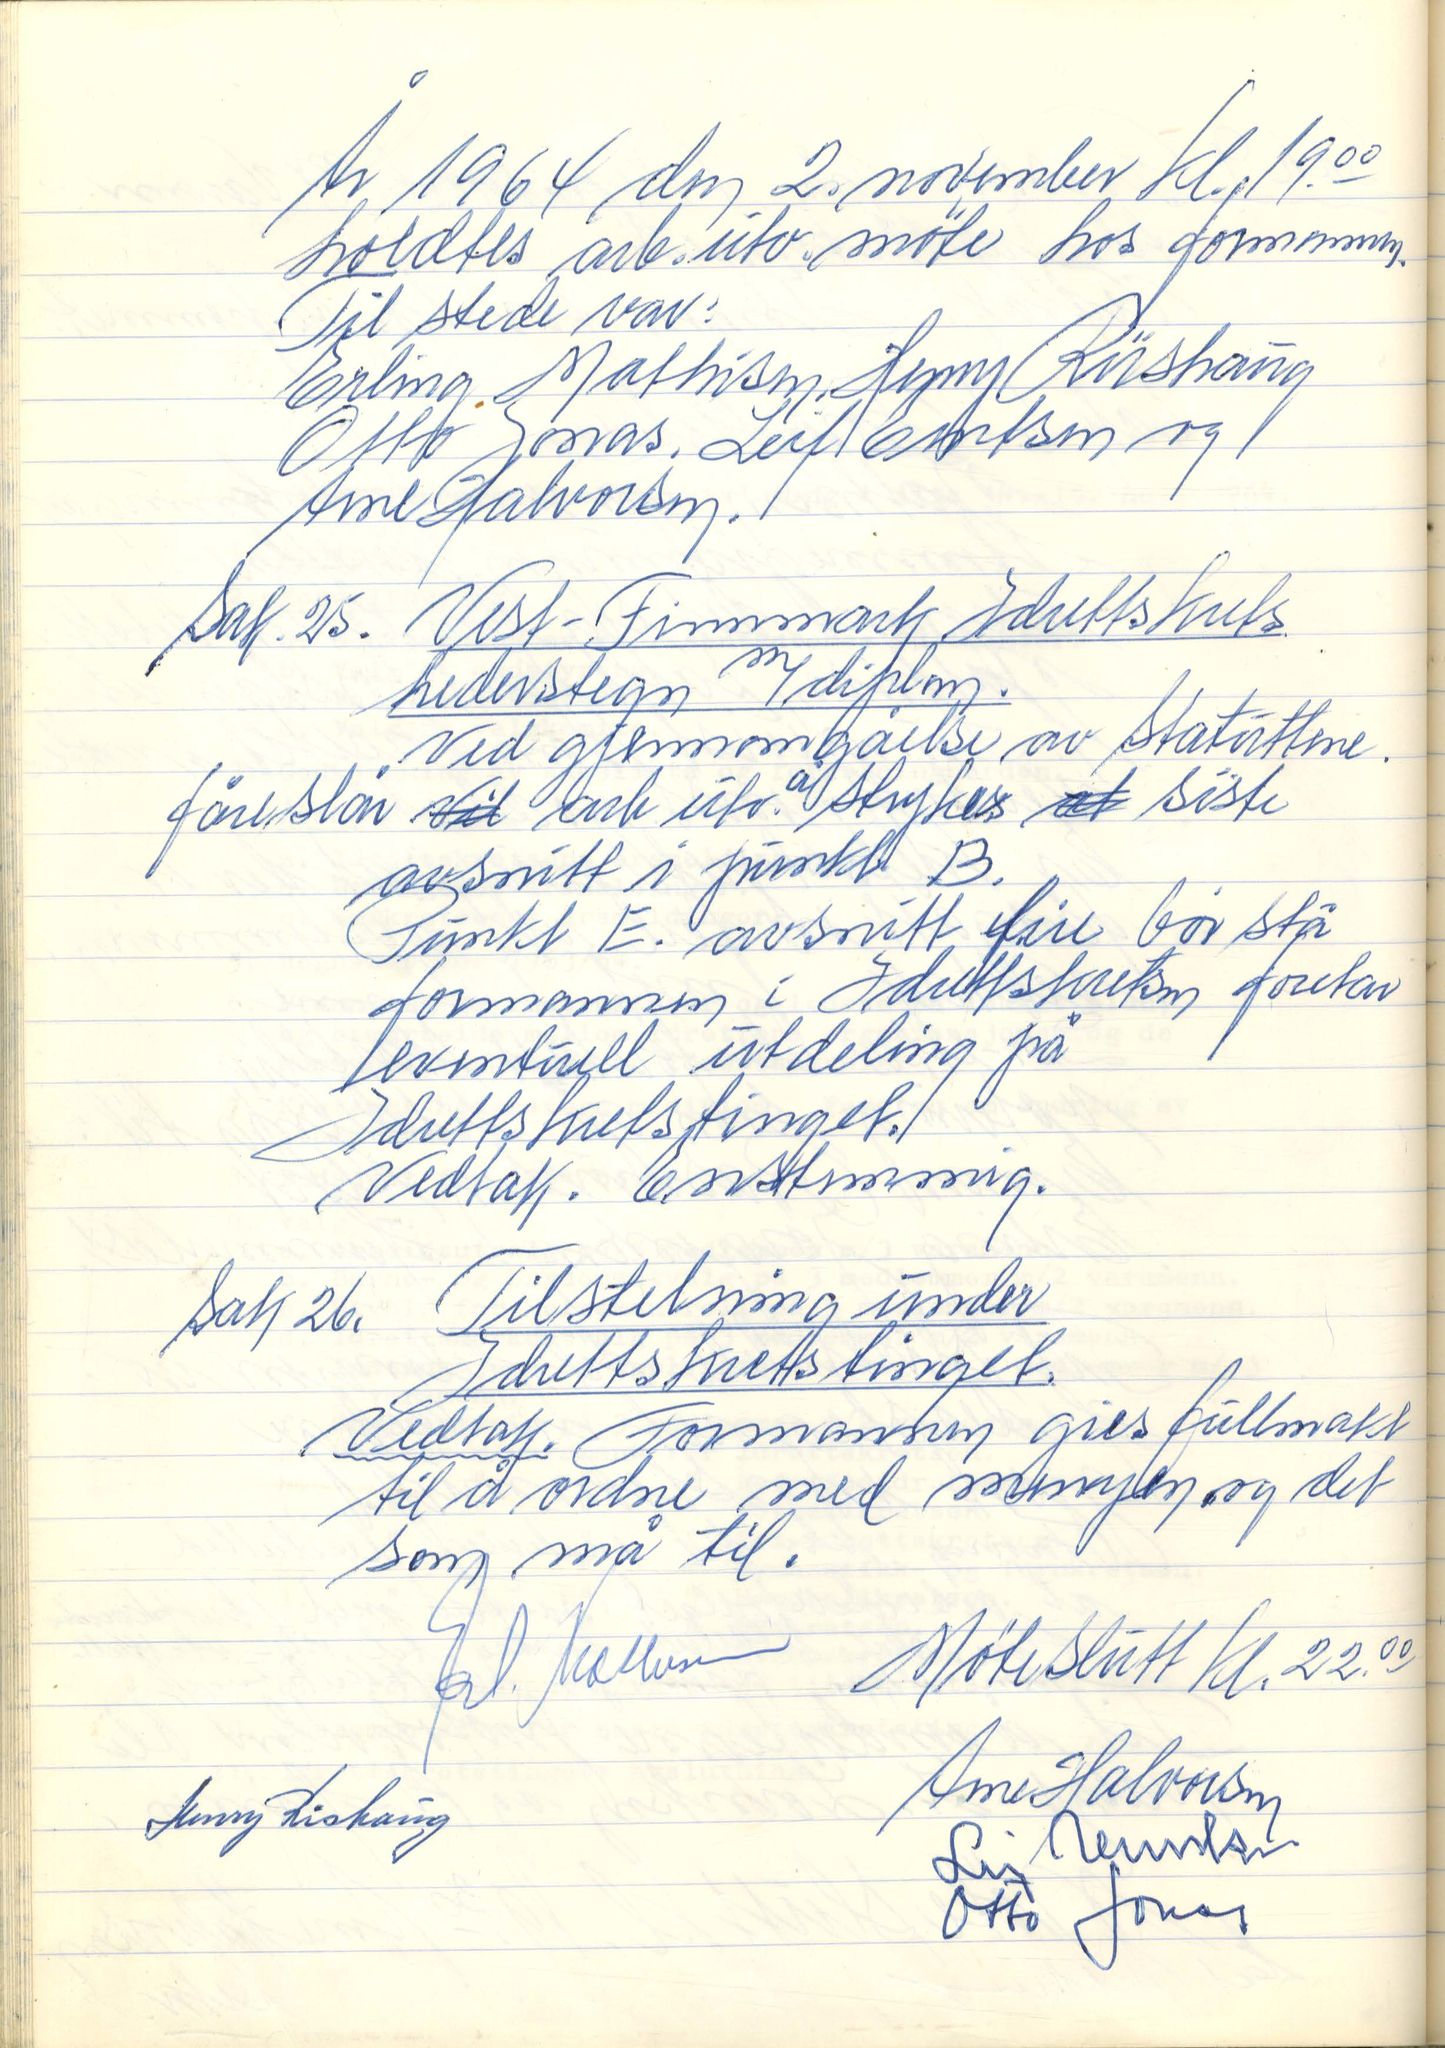 År 1964 den 2. november kl. 19.00
holdtes arb. utv. möte hos formannen.
Til stede var:
Erling Mathisen, Henry Riishaug
Otto Jonas, Leif Evertsen og
Arne Halvorsen.
Sak. 25. Vest-Finnmark Idrettskrets
hederstegn m/diplom.
Ved gjennomgåelse av statuttene.
föreslår arb utv. å stryke siste
avsnitt i punkt B.
Punkt E. avsnitt fire bör stå
formannen i Idrettskretsen foretar
eventuell utdeling på
Idrettskretstinget.
Vedtak. Enstemmig.
Sak 26. Tilstelning under
Idrettskretstinget.
Vedtak. Formannen gies fullmakt
til å ordne med menyen og det
som må til.
Erl. Mathisen
Möte slutt kl. 22.00
Arne Halvorsen
Henry Rishaug
Leif
Otto Jonas